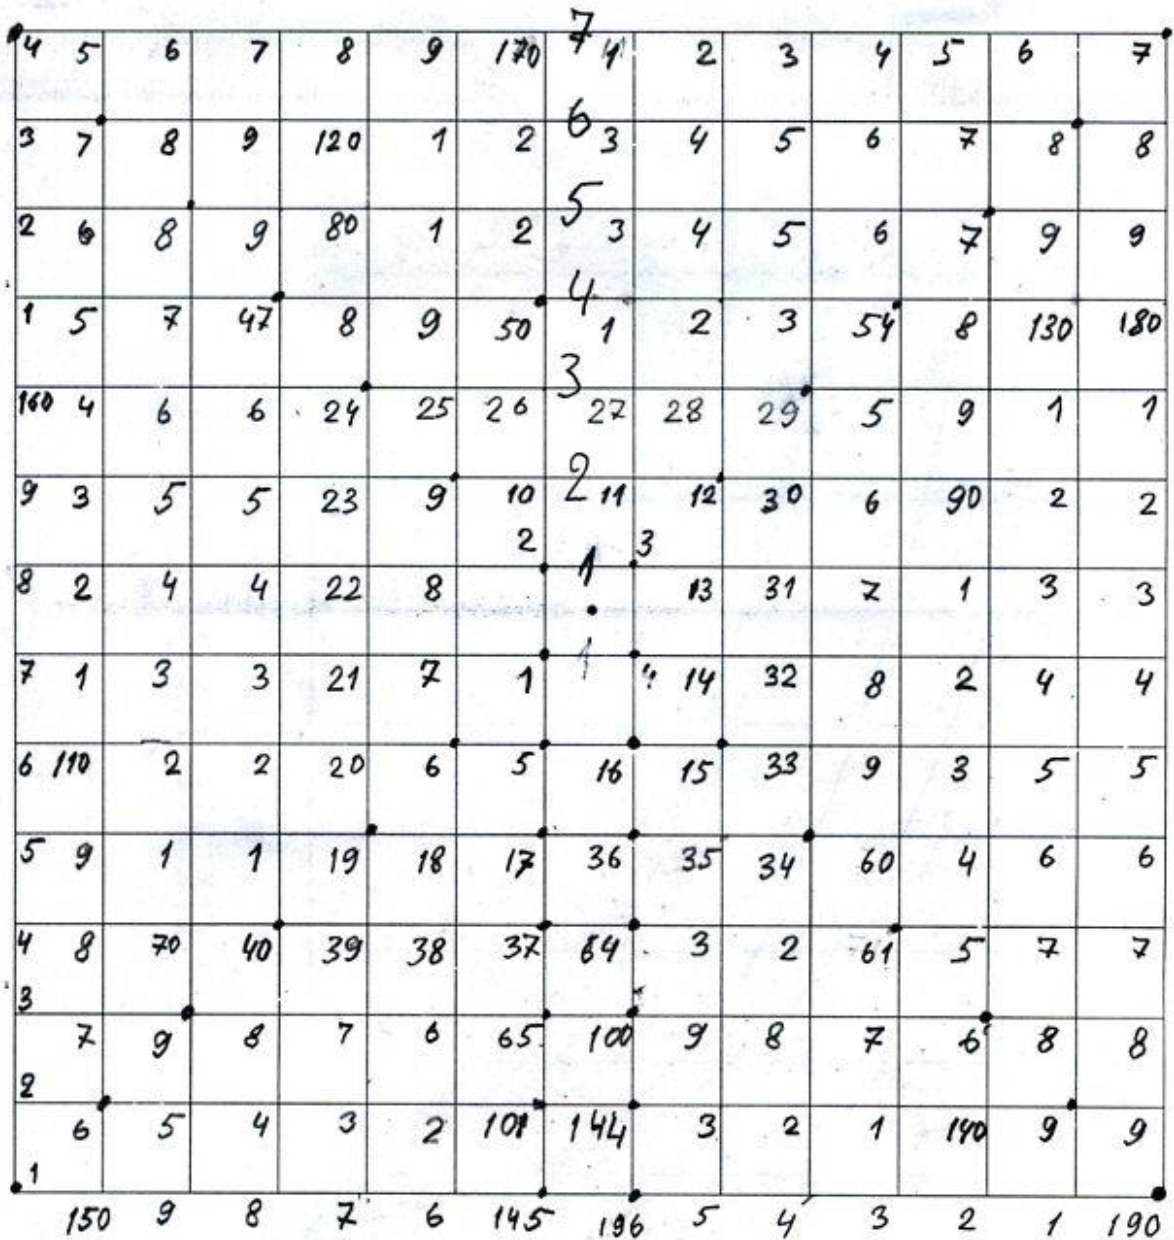 7
4 5 6 7 8 9 170 1 2 3 4 5 6 7
6
3 7 8 9 120 1 2 3 4 5 6 7 8 8
5
2 6 8 9 80 1 2 3 4 5 6 7 9 9
4
1 5 7 47 8 9 50 1 2 3 54 8 130 180
3
160 4 6 6 24 25 26 27 28 29 5 9 1 1
2
9 3 5 5 23 9 10 11 12 30 6 90 2 2
2 3
1
8 2 4 4 22 8 13 31 7 1 3 3
1
7 1 3 3 21 7 1 4 14 32 8 2 4 4
6 110 2 2 20 6 5 16 15 33 9 3 5 5
5 9 1 1 19 18 17 36 35 34 60 4 6 6
4 8 70 40 39 38 37 64 3 2 61 5 7 7
3
7 9 8 7 6 65 100 9 8 7 6 8 8
2
6 5 4 3 2 101 144 3 2 1 140 9 9
1
150 9 8 7 6 145 196 5 4 3 2 1 190